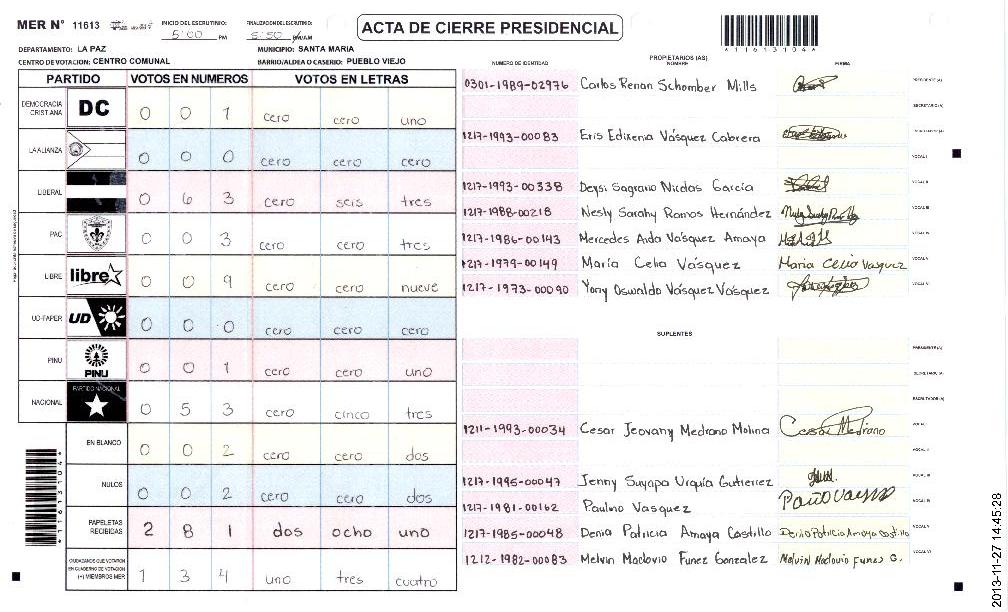 MER N° 11613
INICIO DEL ESCRUTINIO: 5:00 PM
FINALIZACION DEL ESCRUTINIO: 5:50 PM/AM
ACTA DE CIERRE PRESIDENCIAL
*11613104*
DEPARTAMENTO: LA PAZ
MUNICIPIO: SANTA MARIA
CENTRO DE VOTACION: CENTRO COMUNAL
BARRIO/ALDEA O CASERIO: PUEBLO VIEJO
PARTIDO VOTOS EN NUMEROS VOTOS EN LETRAS
DEMOCRACIA CRISTIANA DC 0 0 1 cero cero uno
LA ALIANZA 0 0 0 cero cero cero
LIBERAL 0 6 3 cero seis tres
PAC 0 0 3 cero cero tres
LIBRE libre 0 0 9 cero cero nueve
UD-FAPER UD 0 0 0 cero cero cero
PINU PINU 0 0 1 cero cero uno
NACIONAL PARTIDO NACIONAL 0 5 3 cero cinco tres
EN BLANCO 0 0 2 cero cero dos
NULOS 0 0 2 cero cero dos
PAPELETAS RECIBIDAS 2 8 1 dos ocho uno
CIUDADANOS QUE VOTARON EN CUADERNO DE VOTACION (+) MIEMBROS MER 1 3 4 uno tres cuatro
*11613104*
PROPIETARIOS (AS)
NUMERO DE IDENTIDAD NOMBRE FIRMA
0301-1989-02976 Carlos Renan Schomber Mills PRESIDENTE(A)
SECRETARIO(A)
1217-1993-00083 Eris Edixenia Vásquez Cabrera
VOCAL I
1217-1993-00338 Deysi Sagrario Nicolas García VOCAL II
1217-1988-00218 Nesly Sarahy Ramos Hernández VOCAL III
1217-1986-00143 Mercedes Aida Vásquez Amaya VOCAL IV
1217-1979-00149 María Celia Vásquez Maria Celia Vasquez VOCAL V
1217-1973-00090 Yony Oswaldo Vásquez Vásquez VOCAL VI
SUPLENTES
PRESIDENTE(A)
SECRETARIO(A)
ESCRUTADOR(A)
1211-1993-00034 Cesar Jeovany Medrano Molina Cesar Medrano VOCAL I
VOCAL II
1217-1995-00047 Jenny Suyapa Urquía Gutierrez VOCAL III
1217-1981-00162 Paulino Vasquez VOCAL IV
1217-1985-00048 Denia Patricia Amaya Castillo Denia Patricia Amaya Castillo VOCAL V
1212-1982-00083 Melvin Maclovio Funez Gonzalez Melvin Maclovio Funes G. VOCAL VI
2013-11-27 14:45:28